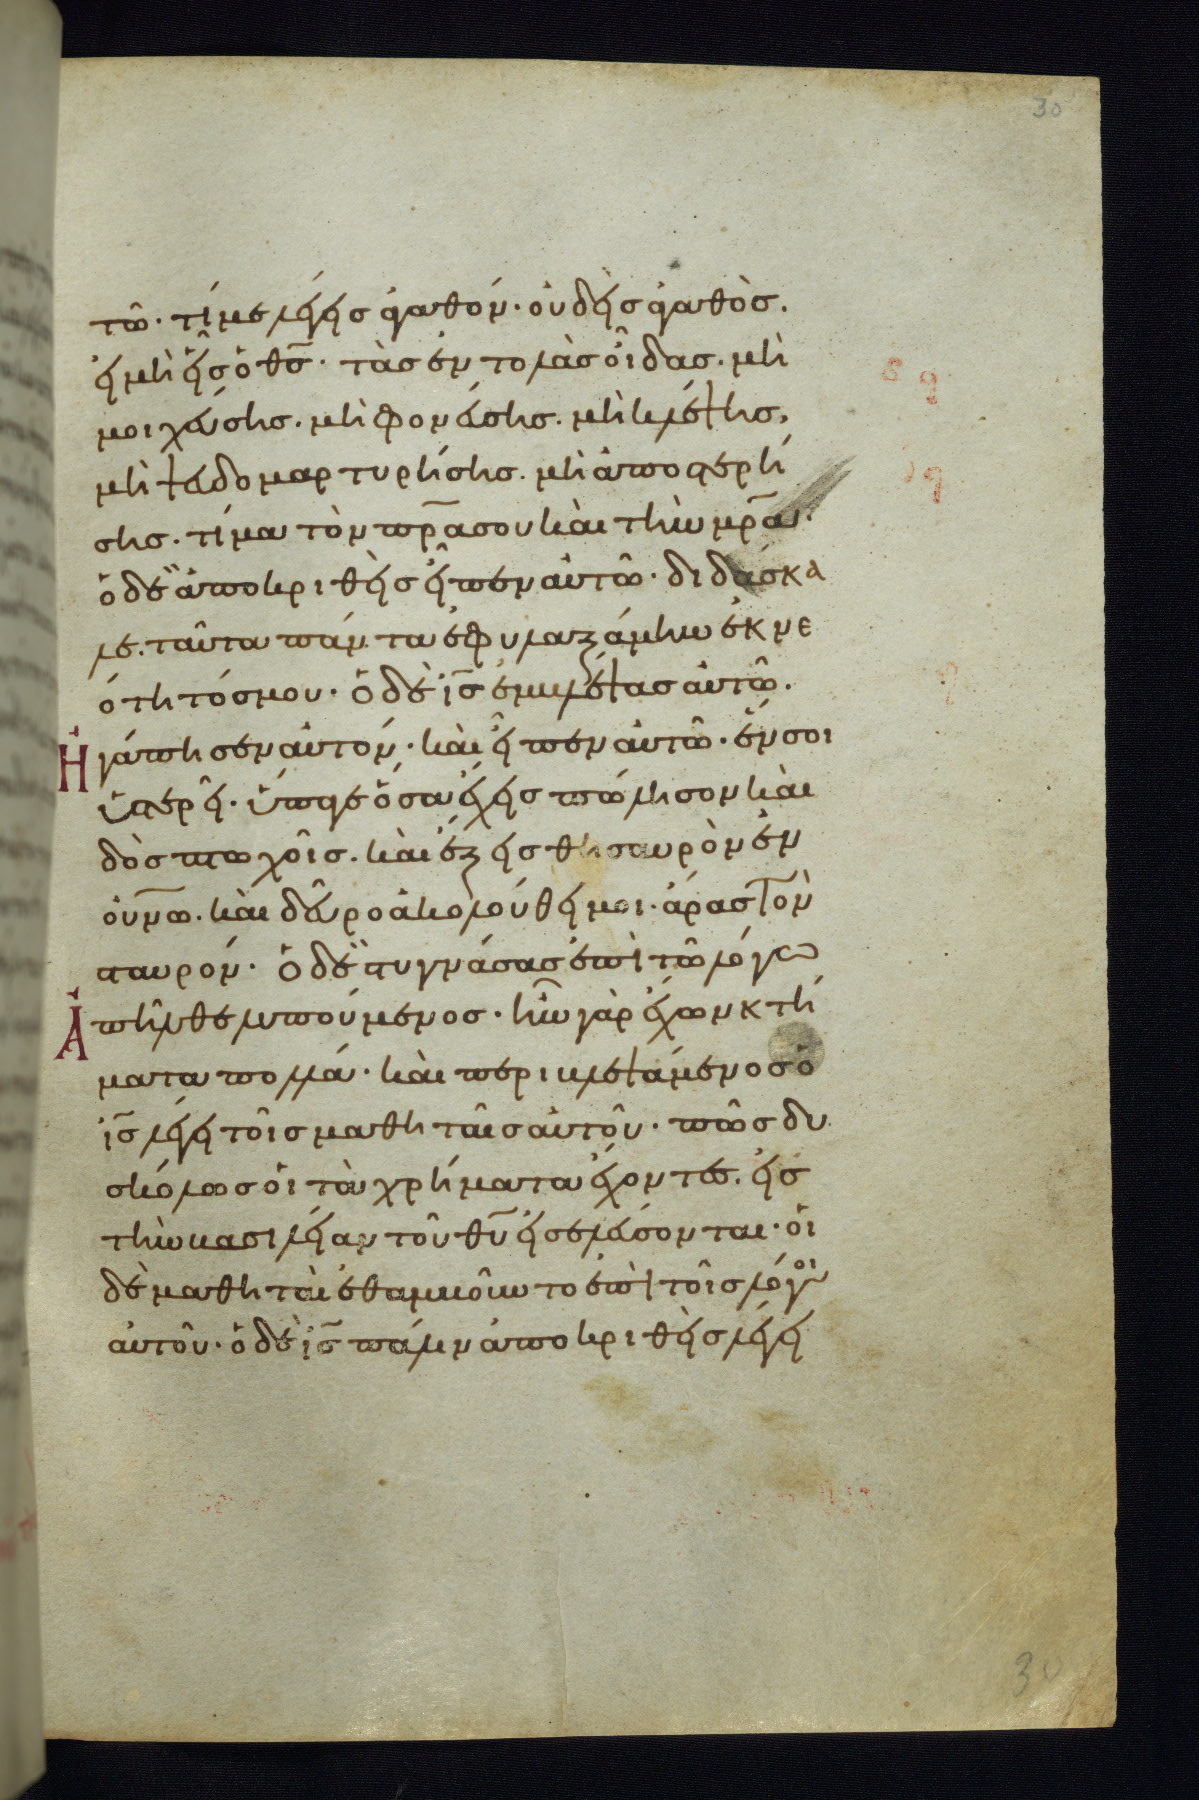 30
τῶ· τί με λέγεις ἀγαθόν· οὐδεὶς ἀγαθὸς.
εἰ μὴ εἷς ὁ θς̅· τὰς ἐντολὰς οἶδας· μὴ
μοιχεύσης. μὴ φονεύσης. μὴ κλέψης.
μὴ ψευδομαρτυρήσης. μὴ ἀποστερή
σης. τίμα τὸν πρ̅α σου καὶ τὴν μρ̅α·
ὁ δὲ ἀποκριθεὶς εἶπεν αὐτῶ· διδάσκα
λε. ταῦτα πάντα ἐφυλαξάμην ἐκ νε
ότητός μου. Ὁ δὲ ις̅ ἐμβλέψας αὐτῶ.
Ἠγάπησεν αὐτόν· καὶ εἶπεν αὐτῶ· ἕν σοι
ὑστερεῖ. ὕπαγε ὅσα ἔχεις πώλησον καὶ
δὸς πτωχοῖς. καὶ ἕξεις θησαυρὸν ἐν
οὐνω̅. καὶ δεῦρο ἀκολούθει μοι· ἄρας τὸν
σταυρόν· Ὁ δὲ στυγνάσας ἐπὶ τῶ λόγω
Ἀπῆλθε λυπούμενος· ἦν γὰρ ἔχων κτή
ματα πολλά· καὶ περιβλεψάμενος ὁ
ις̅ λέγει τοῖς μαθηταῖς αὐτοῦ· πῶς δυ
σκόλως οἱ τὰ χρήματα ἔχοντες. εἰς
τὴν βασιλείαν τοῦ θυ̅ εἰσελεύσονται· οἱ
δὲ μαθηταὶ ἐθαμβοῦντο ἐπὶ τοῖς λόγοις
αὐτοῦ· ὁ δὲ ις̅ πάλιν ἀποκριθεὶς λέγει
30